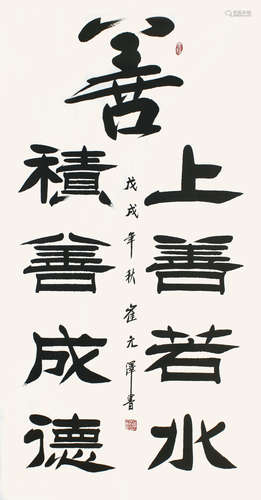 善
上善若水
積善成德
戊戌年秋 崔元澤書